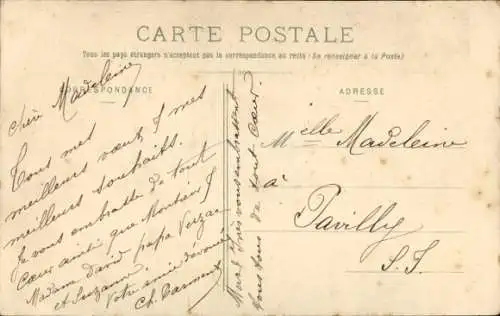 CARTE POSTALE
Tous les pays étrangers n'acceptent pas la correspondance au recto (Se renseigner à la Poste)
CORRESPONDANCE
ADRESSE
chère Madeleine
Tous mes
meilleurs vœux & mes
meilleurs souhaits.
Je vous embrasse de tout
cœur ainsi que
Madame David papa
et Suzanne.
Votre amie dévouée
Ch.
vous embrassent
tous de tout cœur.
Melle Madeleine
à
Pavilly
S. I.